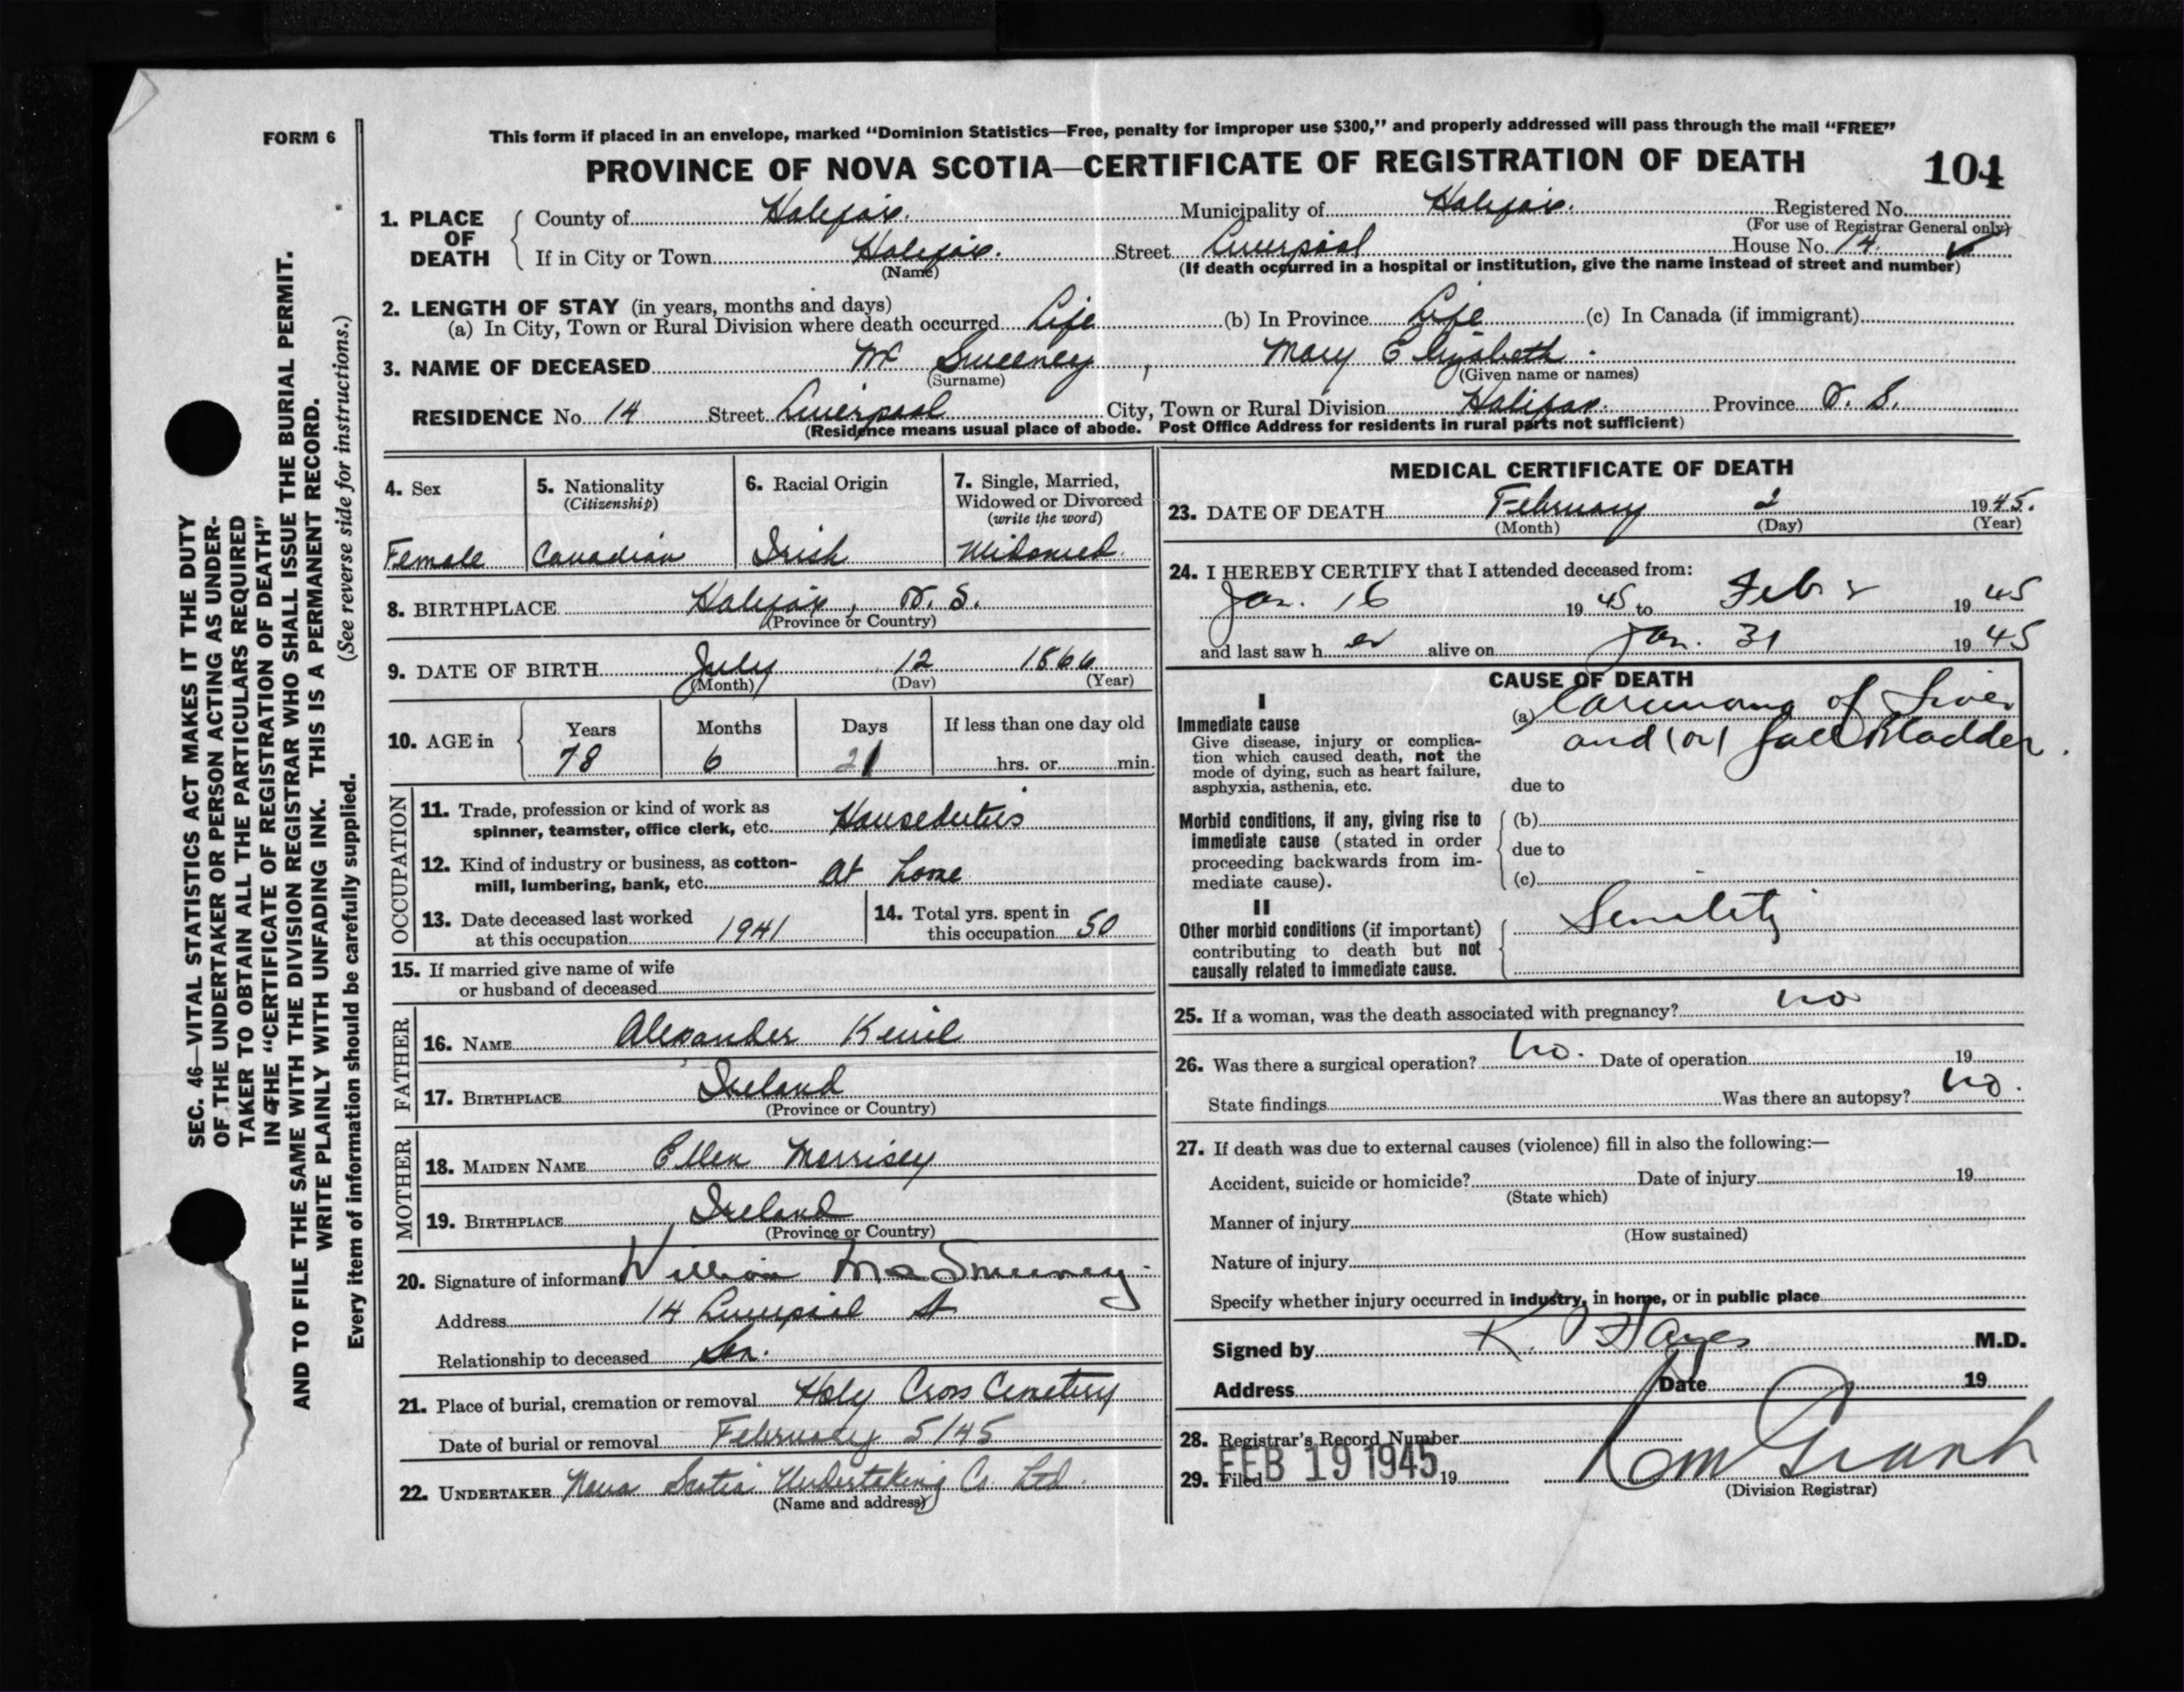 FORM 6
This form if placed in an envelope, marked “Dominion Statistics—Free, penalty for improper use $300,” and properly addressed will pass through the mail “FREE”
PROVINCE OF NOVA SCOTIA—CERTIFICATE OF REGISTRATION OF DEATH
104
1. PLACE OF DEATH
County of Halifax. Municipality of Halifax. Registered No.
(For use of Registrar General only)
If in City or Town Halifax. Street Liverpool House No. 14.
(Name) (If death occurred in a hospital or institution, give the name instead of street and number)
2. LENGTH OF STAY (in years, months and days)
(a) In City, Town or Rural Division where death occurred Life (b) In Province Life (c) In Canada (if immigrant)
3. NAME OF DECEASED Mc Sweeney, Mary Elizabeth.
(Surname) (Given name or names)
RESIDENCE No. 14 Street Liverpool City, Town or Rural Division Halifax. Province N. S.
(Residence means usual place of abode. Post Office Address for residents in rural parts not sufficient)
4. Sex
Female
5. Nationality
(Citizenship)
Canadian
6. Racial Origin
Irish
7. Single, Married,
Widowed or Divorced
(write the word)
Widowed.
8. BIRTHPLACE Halifax, N. S.
(Province or Country)
9. DATE OF BIRTH July 12 1866
(Month) (Day) (Year)
10. AGE in
Years Months Days If less than one day old
78 6 21 hrs. or min.
OCCUPATION
11. Trade, profession or kind of work as
spinner, teamster, office clerk, etc. Houseduties
12. Kind of industry or business, as cotton-
mill, lumbering, bank, etc. At home
13. Date deceased last worked
at this occupation 1941
14. Total yrs. spent in
this occupation 50
15. If married give name of wife
or husband of deceased
FATHER
16. NAME Alexander
17. BIRTHPLACE Ireland
(Province or Country)
MOTHER
18. MAIDEN NAME Ellen Morrisey
19. BIRTHPLACE Ireland
(Province or Country)
20. Signature of informant William MacSweeney
Address 14 Liverpool St
Relationship to deceased Son.
21. Place of burial, cremation or removal Holy Cross Cemetery
Date of burial or removal February 5/45
22. UNDERTAKER Nova Scotia Undertaking Co. Ltd.
(Name and address)
MEDICAL CERTIFICATE OF DEATH
23. DATE OF DEATH February 2 1945.
(Month) (Day) (Year)
24. I HEREBY CERTIFY that I attended deceased from:
Jan. 16 1945 to Feb 2 1945
and last saw h er alive on Jan. 31 1945
CAUSE OF DEATH
I
Immediate cause
Give disease, injury or complica-
tion which caused death, not the
mode of dying, such as heart failure,
asphyxia, asthenia, etc.
(a) Carcinoma of Liver
and (or) Gall Bladder.
due to
Morbid conditions, if any, giving rise to
immediate cause (stated in order
proceeding backwards from im-
mediate cause).
(b)
due to
(c)
II
Other morbid conditions (if important)
contributing to death but not
causally related to immediate cause.
Senility
25. If a woman, was the death associated with pregnancy? no
26. Was there a surgical operation? no. Date of operation 19
State findings Was there an autopsy? no.
27. If death was due to external causes (violence) fill in also the following:—
Accident, suicide or homicide? Date of injury 19
(State which)
Manner of injury
(How sustained)
Nature of injury
Specify whether injury occurred in industry, in home, or in public place
Signed by K. P Hayes M.D.
Address Date 19
28. Registrar's Record Number
29. Filed FEB 19 1945 19
Grant
(Division Registrar)
SEC. 46—VITAL STATISTICS ACT MAKES IT THE DUTY
OF THE UNDERTAKER OR PERSON ACTING AS UNDER-
TAKER TO OBTAIN ALL THE PARTICULARS REQUIRED
IN THE “CERTIFICATE OF REGISTRATION OF DEATH”
AND TO FILE THE SAME WITH THE DIVISION REGISTRAR WHO SHALL ISSUE THE BURIAL PERMIT.
WRITE PLAINLY WITH UNFADING INK. THIS IS A PERMANENT RECORD.
(See reverse side for instructions.)
Every item of information should be carefully supplied.